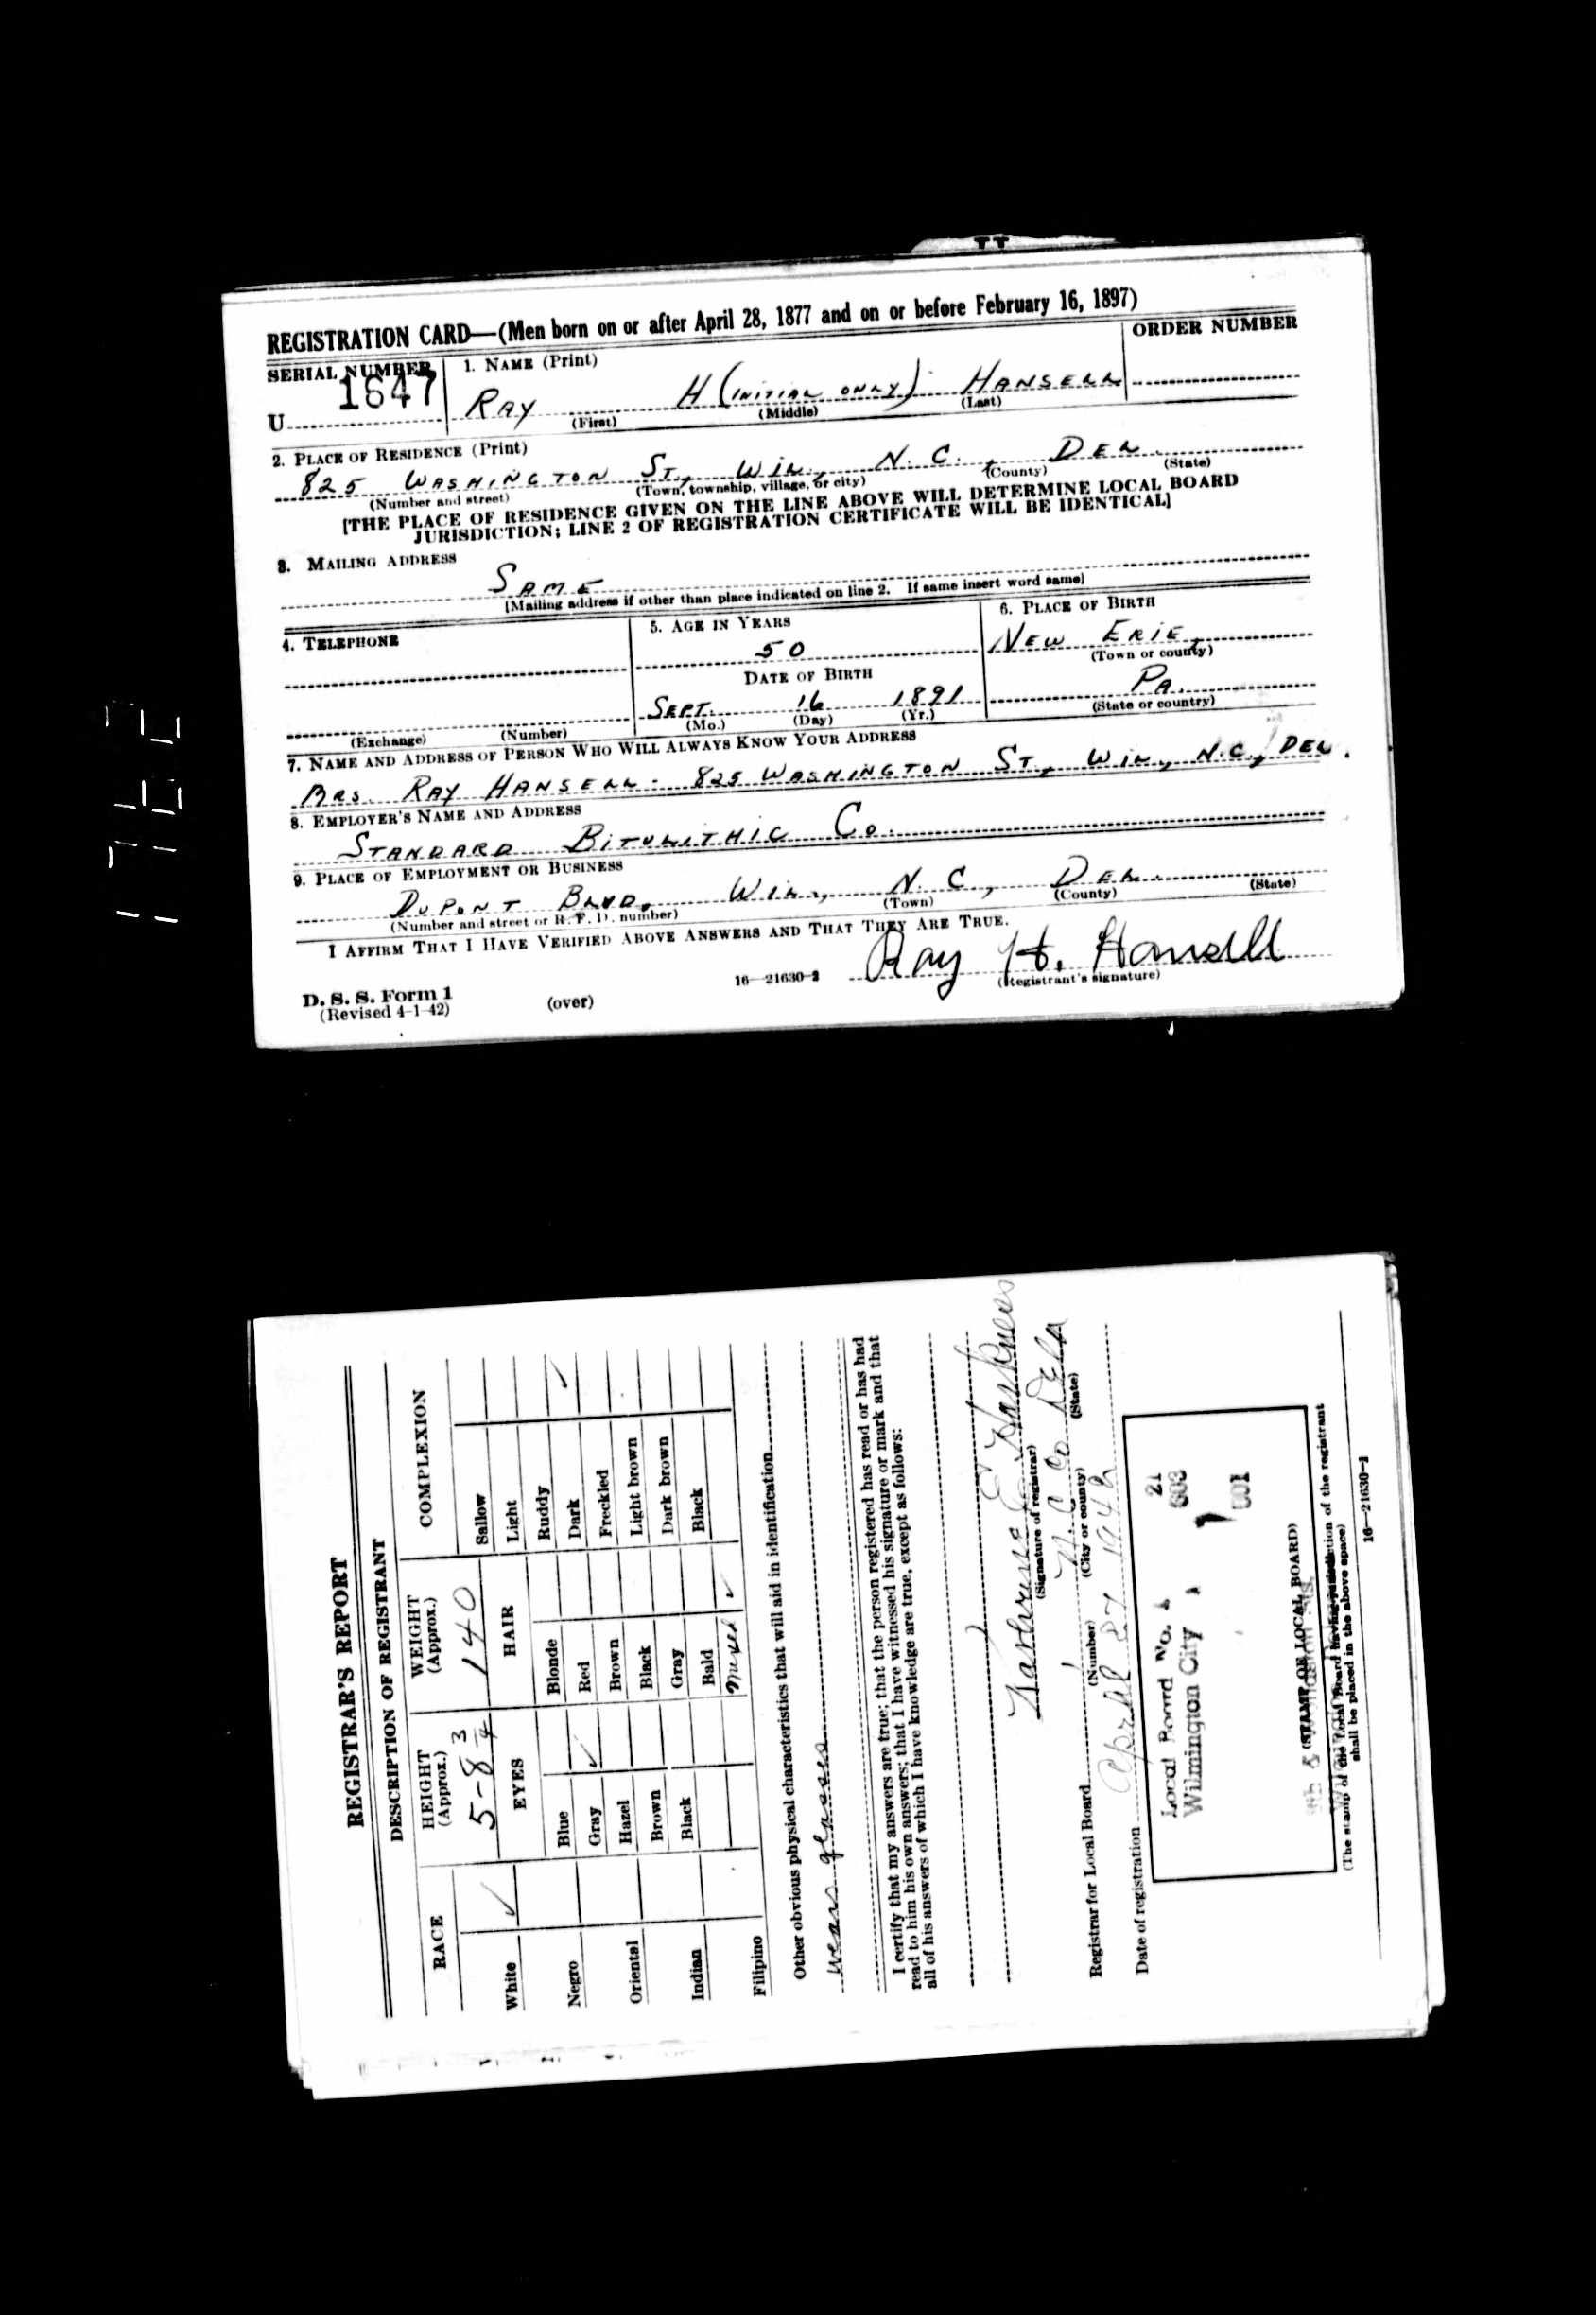 REGISTRATION CARD—(Men born on or after April 28, 1877 and on or before February 16, 1897)
SERIAL NUMBER
1647
U
1. NAME (Print)
RAY H (INITIAL ONLY) HANSELL
(First) (Middle) (Last)
ORDER NUMBER
2. PLACE OF RESIDENCE (Print)
825 WASHINGTON ST, WIL., N. C., DEL.
(Number and street) (Town, township, village, or city) (County) (State)
[THE PLACE OF RESIDENCE GIVEN ON THE LINE ABOVE WILL DETERMINE LOCAL BOARD
JURISDICTION; LINE 2 OF REGISTRATION CERTIFICATE WILL BE IDENTICAL]
3. MAILING ADDRESS
SAME
[Mailing address if other than place indicated on line 2. If same insert word same]
4. TELEPHONE
(Exchange) (Number)
5. AGE IN YEARS
50
DATE OF BIRTH
SEPT. 16 1891
(Mo.) (Day) (Yr.)
6. PLACE OF BIRTH
NEW ERIE,
(Town or county)
PA.
(State or country)
7. NAME AND ADDRESS OF PERSON WHO WILL ALWAYS KNOW YOUR ADDRESS
MRS. RAY HANSELL - 825 WASHINGTON ST, WIL., N.C., DEL.
8. EMPLOYER'S NAME AND ADDRESS
STANDARD BITULITHIC CO.
9. PLACE OF EMPLOYMENT OR BUSINESS
DUPONT BLVD. WIL., N. C., DEL.
(Number and street or R. F. D. number) (Town) (County) (State)
I AFFIRM THAT I HAVE VERIFIED ABOVE ANSWERS AND THAT THEY ARE TRUE.
Ray H. Hansell
(Registrant's signature)
D. S. S. Form 1
(Revised 4-1-42)
(over)
16—21630-2
REGISTRAR'S REPORT
DESCRIPTION OF REGISTRANT
RACE
White ✓
Negro
Oriental
Indian
Filipino
HEIGHT
(Approx.)
5-8 3/4
WEIGHT
(Approx.)
140
EYES
Blue
Gray ✓
Hazel
Brown
Black
HAIR
Blonde
Red
Brown
Black
Gray
Bald
Mixed ✓
COMPLEXION
Sallow
Light
Ruddy
Dark ✓
Freckled
Light brown
Dark brown
Black
Other obvious physical characteristics that will aid in identification
wears glasses
I certify that my answers are true; that the person registered has read or has had
read to him his own answers; that I have witnessed his signature or mark and that
all of his answers of which I have knowledge are true, except as follows:
Katherine E Harkness
(Signature of registrar)
Registrar for Local Board 1 N. C Co Dela
(Number) (City or county) (State)
Date of registration April 27 1942
Local Board No. 1
Wilmington City
21
003
1
001
(STAMP OF LOCAL BOARD)
(The stamp of the Local Board having jurisdiction of the registrant
shall be placed in the above space)
16—21630-1